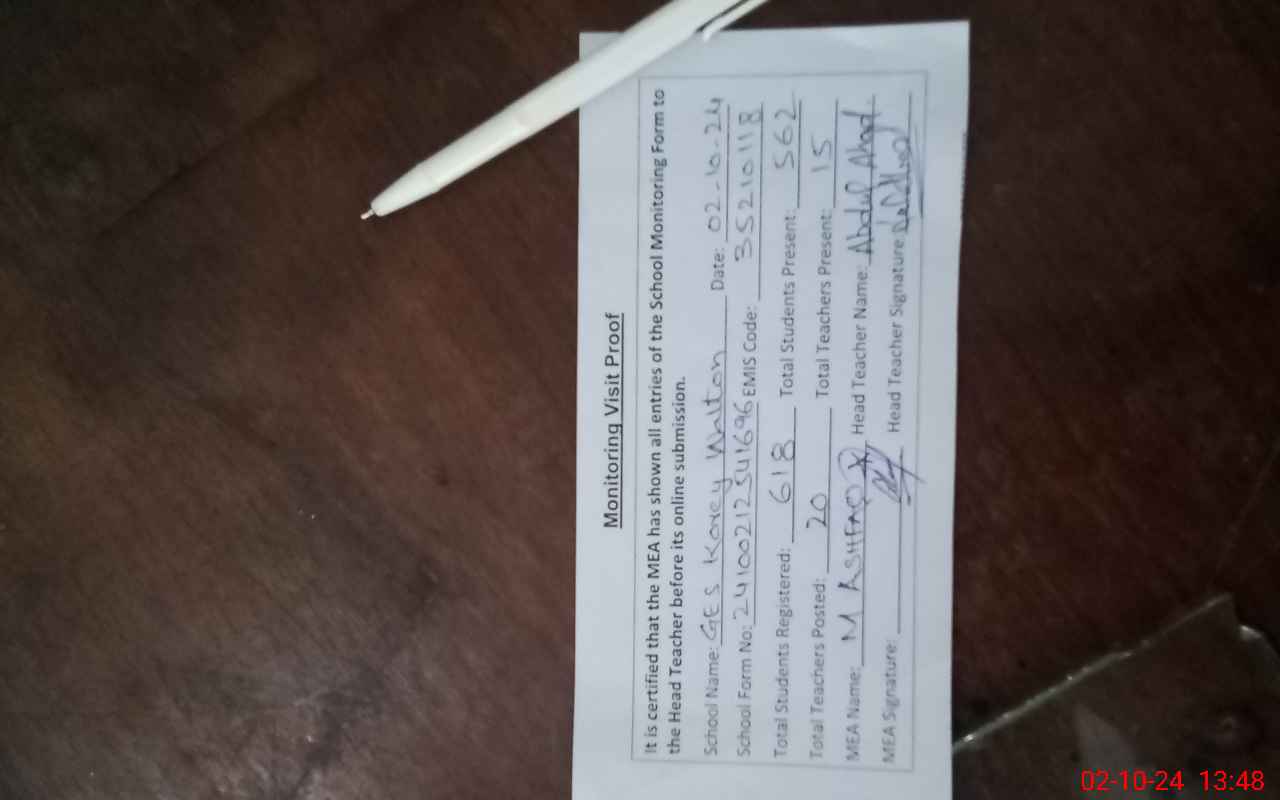 Monitoring Visit Proof
It is certified that the MEA has shown all entries of the School Monitoring Form to
the Head Teacher before its online submission.
School Name: GES Korey Walton Date: 02-10-24
School Form No: 24100212541696 EMIS Code: 35210118
Total Students Registered: 618 Total Students Present: 562
Total Teachers Posted: 20 Total Teachers Present: 15
MEA Name: M ASHFAQ Head Teacher Name: Abdul Ahad
MEA Signature: Head Teacher Signature:
02-10-24 13:48